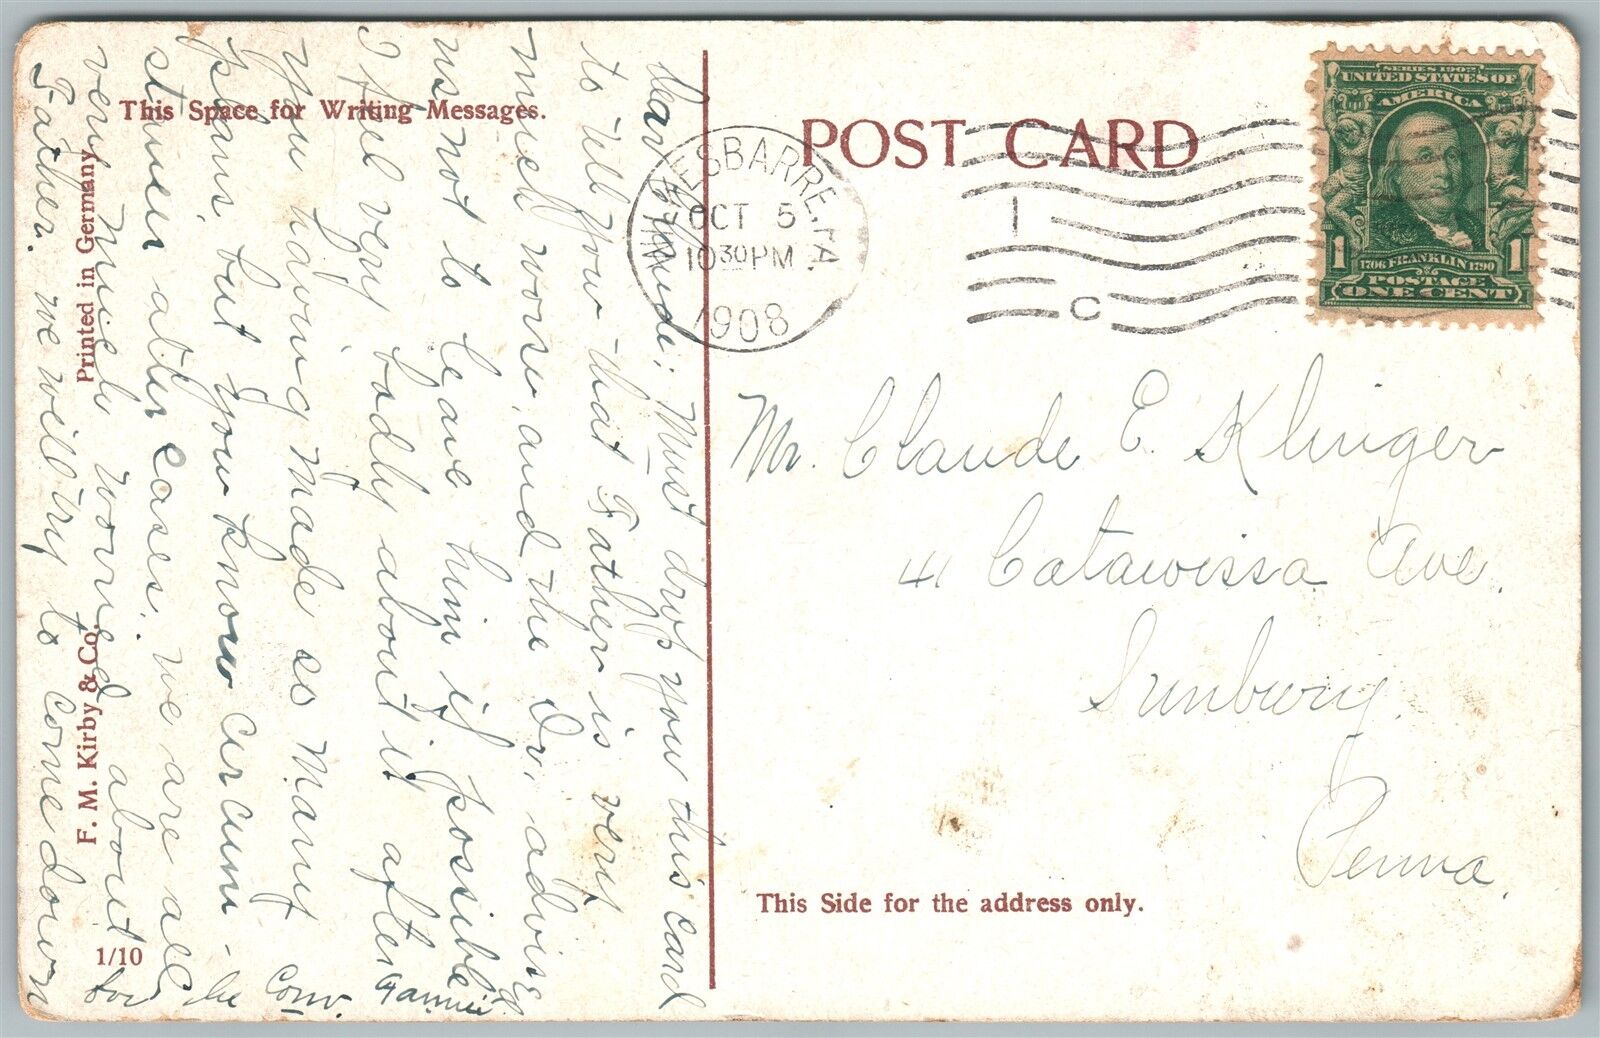 This Space for Writing Messages.
POST CARD
WILKESBARRE, PA.
OCT 5
10 30 PM
1908
1
C
SERIES 1902
UNITED STATES OF
AMERICA
1
1
1706 FRANKLIN 1790
POSTAGE
ONE CENT
Dear Claude; Must drop you this card
to tell you that Father is very
much worse, and the Dr. advises
us not to leave him if possible
I feel very badly about it after
you having made so many
plans, but you know circum-
stances alter cases. We are all
very much worried about
Father. We will try to come down
for the Conv. Mamie
Mr. Claude E. Klinger
41 Catawissa Ave.
Sunbury.
Penna.
This Side for the address only.
Printed in Germany
F. M. Kirby & Co.
1/10